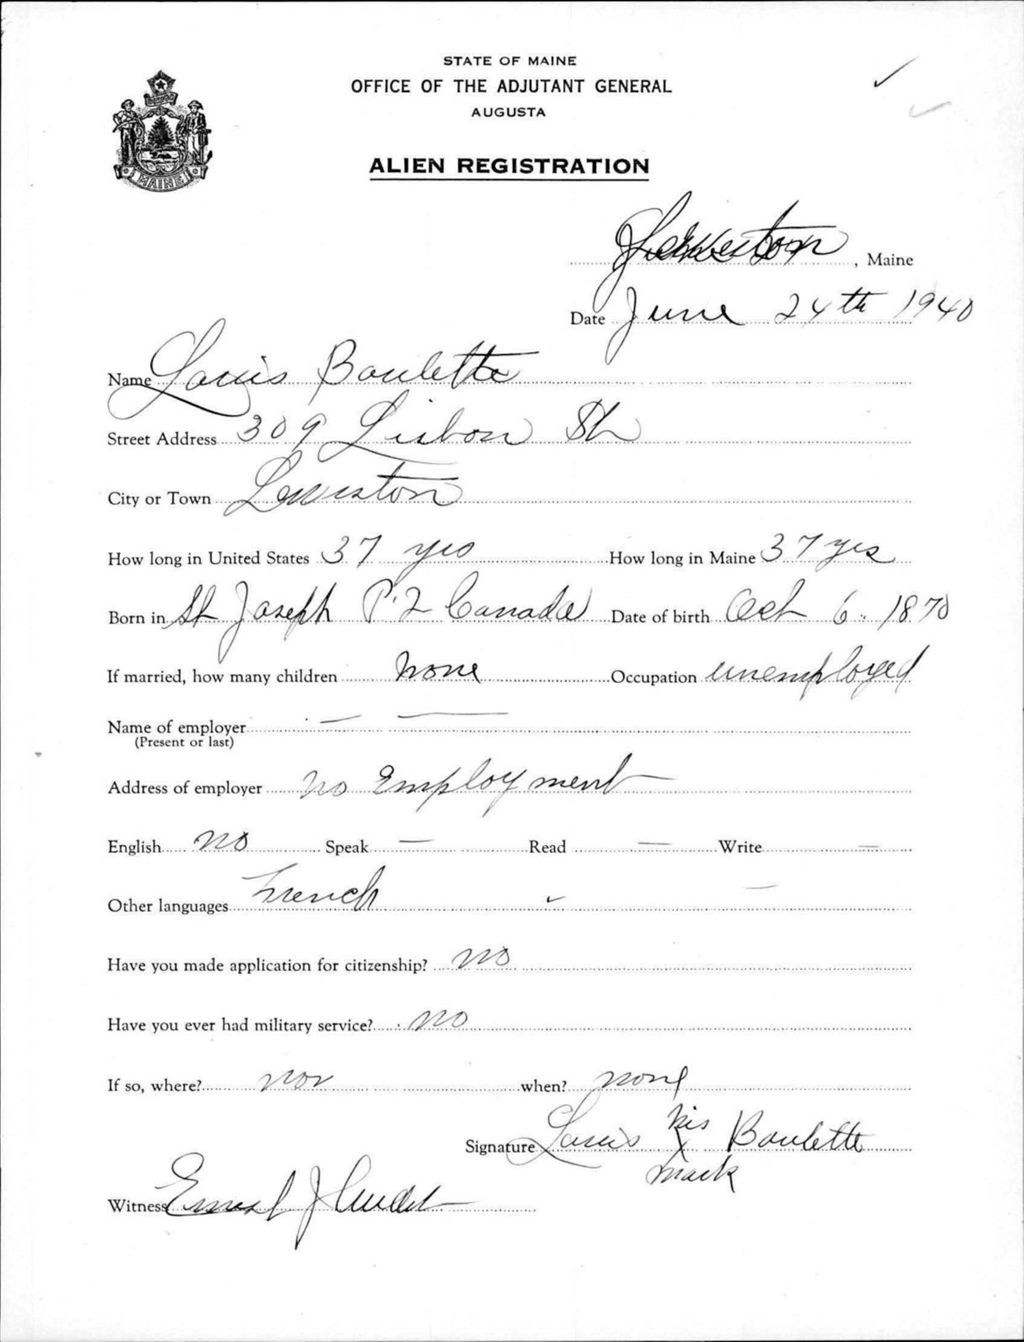 STATE OF MAINE
OFFICE OF THE ADJUTANT GENERAL
AUGUSTA
MAINE
ALIEN REGISTRATION
Lewiston, Maine
Date June 24th 1940
Name Louis Boulette
Street Address 309 Lisbon St
City or Town Lewiston
How long in United States 37 yrs How long in Maine 37 yrs
Born in St Joseph P.Q Canada Date of birth Oct 6. 1870
If married, how many children none Occupation unemployed
Name of employer — —
(Present or last)
Address of employer no Employment
English no Speak — Read — Write —
Other languages French - —
Have you made application for citizenship? no
Have you ever had military service? no
If so, where? non when? none
Signature Louis his X mark Boulette
Witness Ernest J